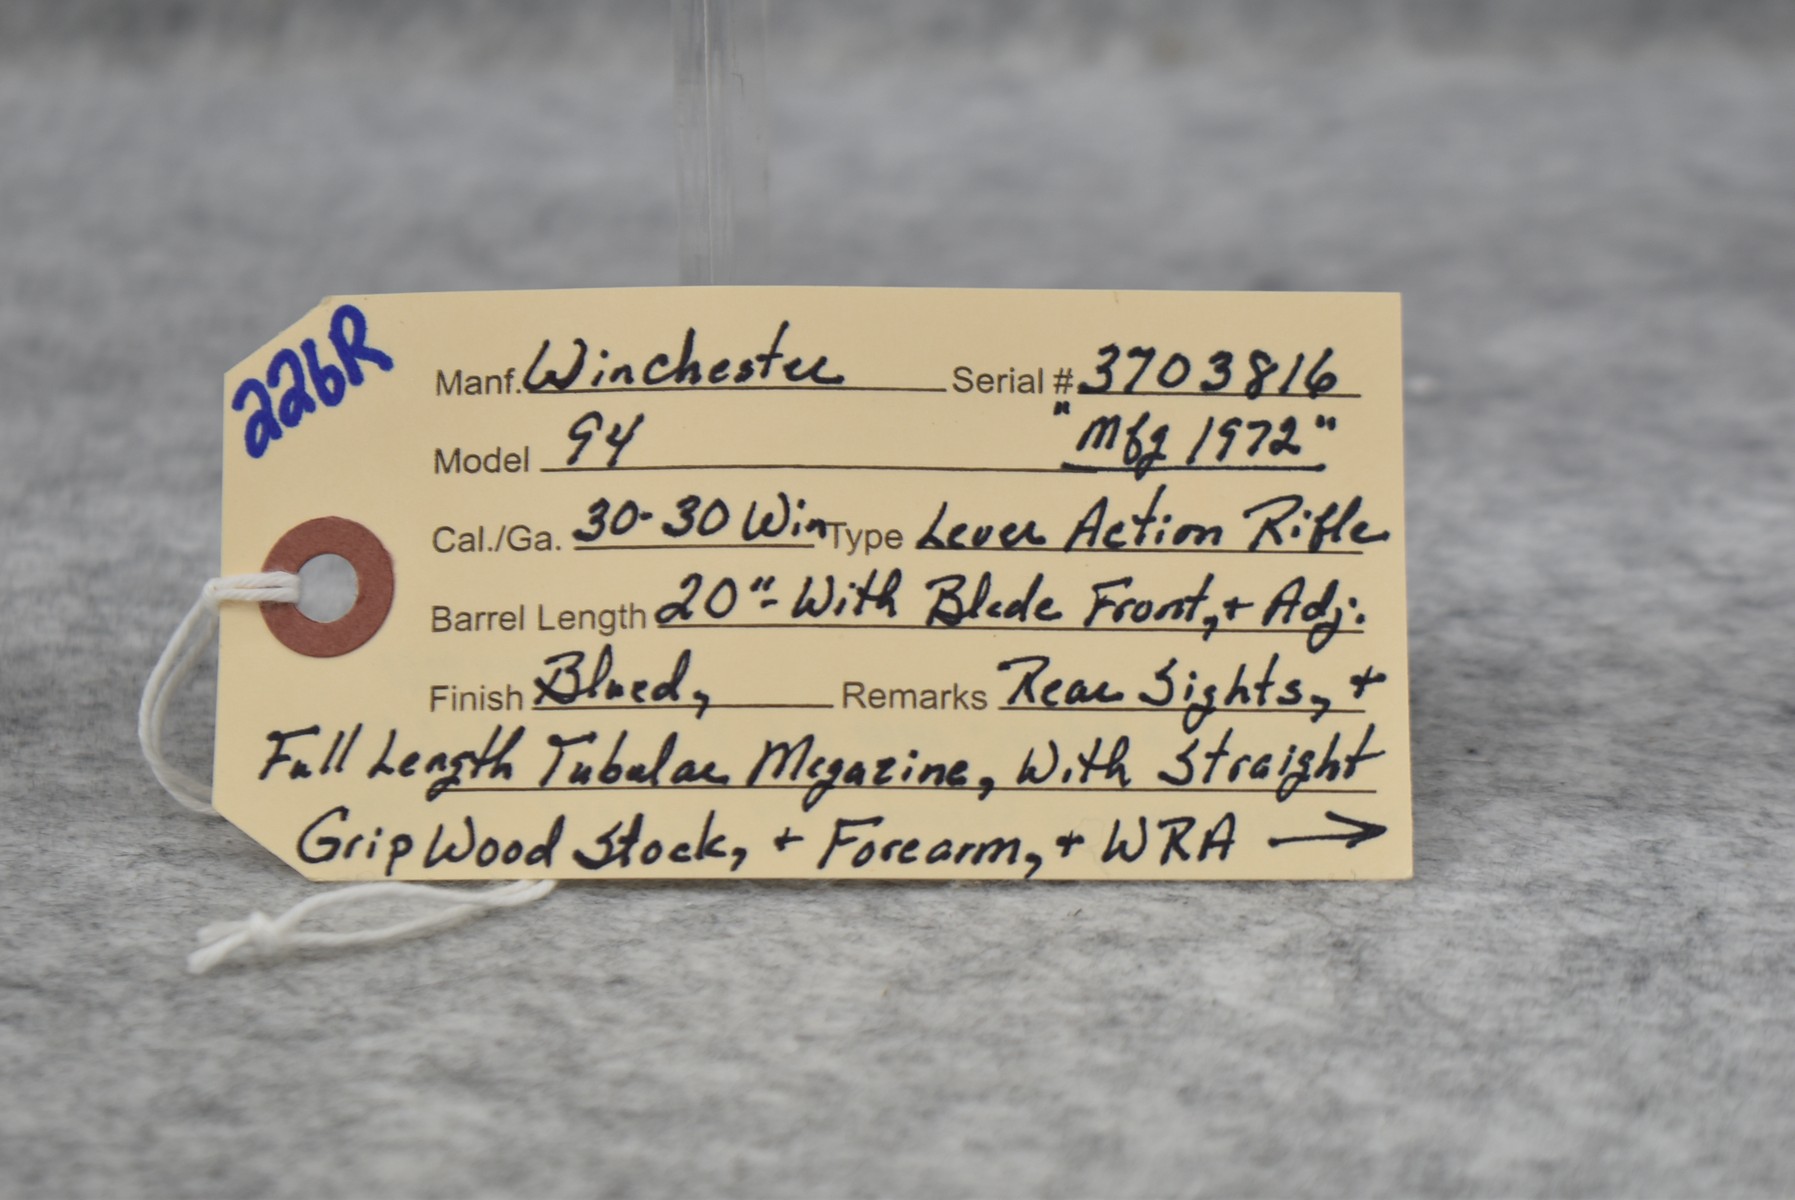 226R
Manf. Winchester Serial # 3703816
Model 94 "Mfg 1972"
Cal./Ga. 30-30 Win Type Lever Action Rifle
Barrel Length 20"- With Blade Front, + Adj.
Finish Blued, Remarks Rear Sights, +
Full Length Tubular Magazine, With Straight
Grip Wood Stock, + Forearm, + WRA →